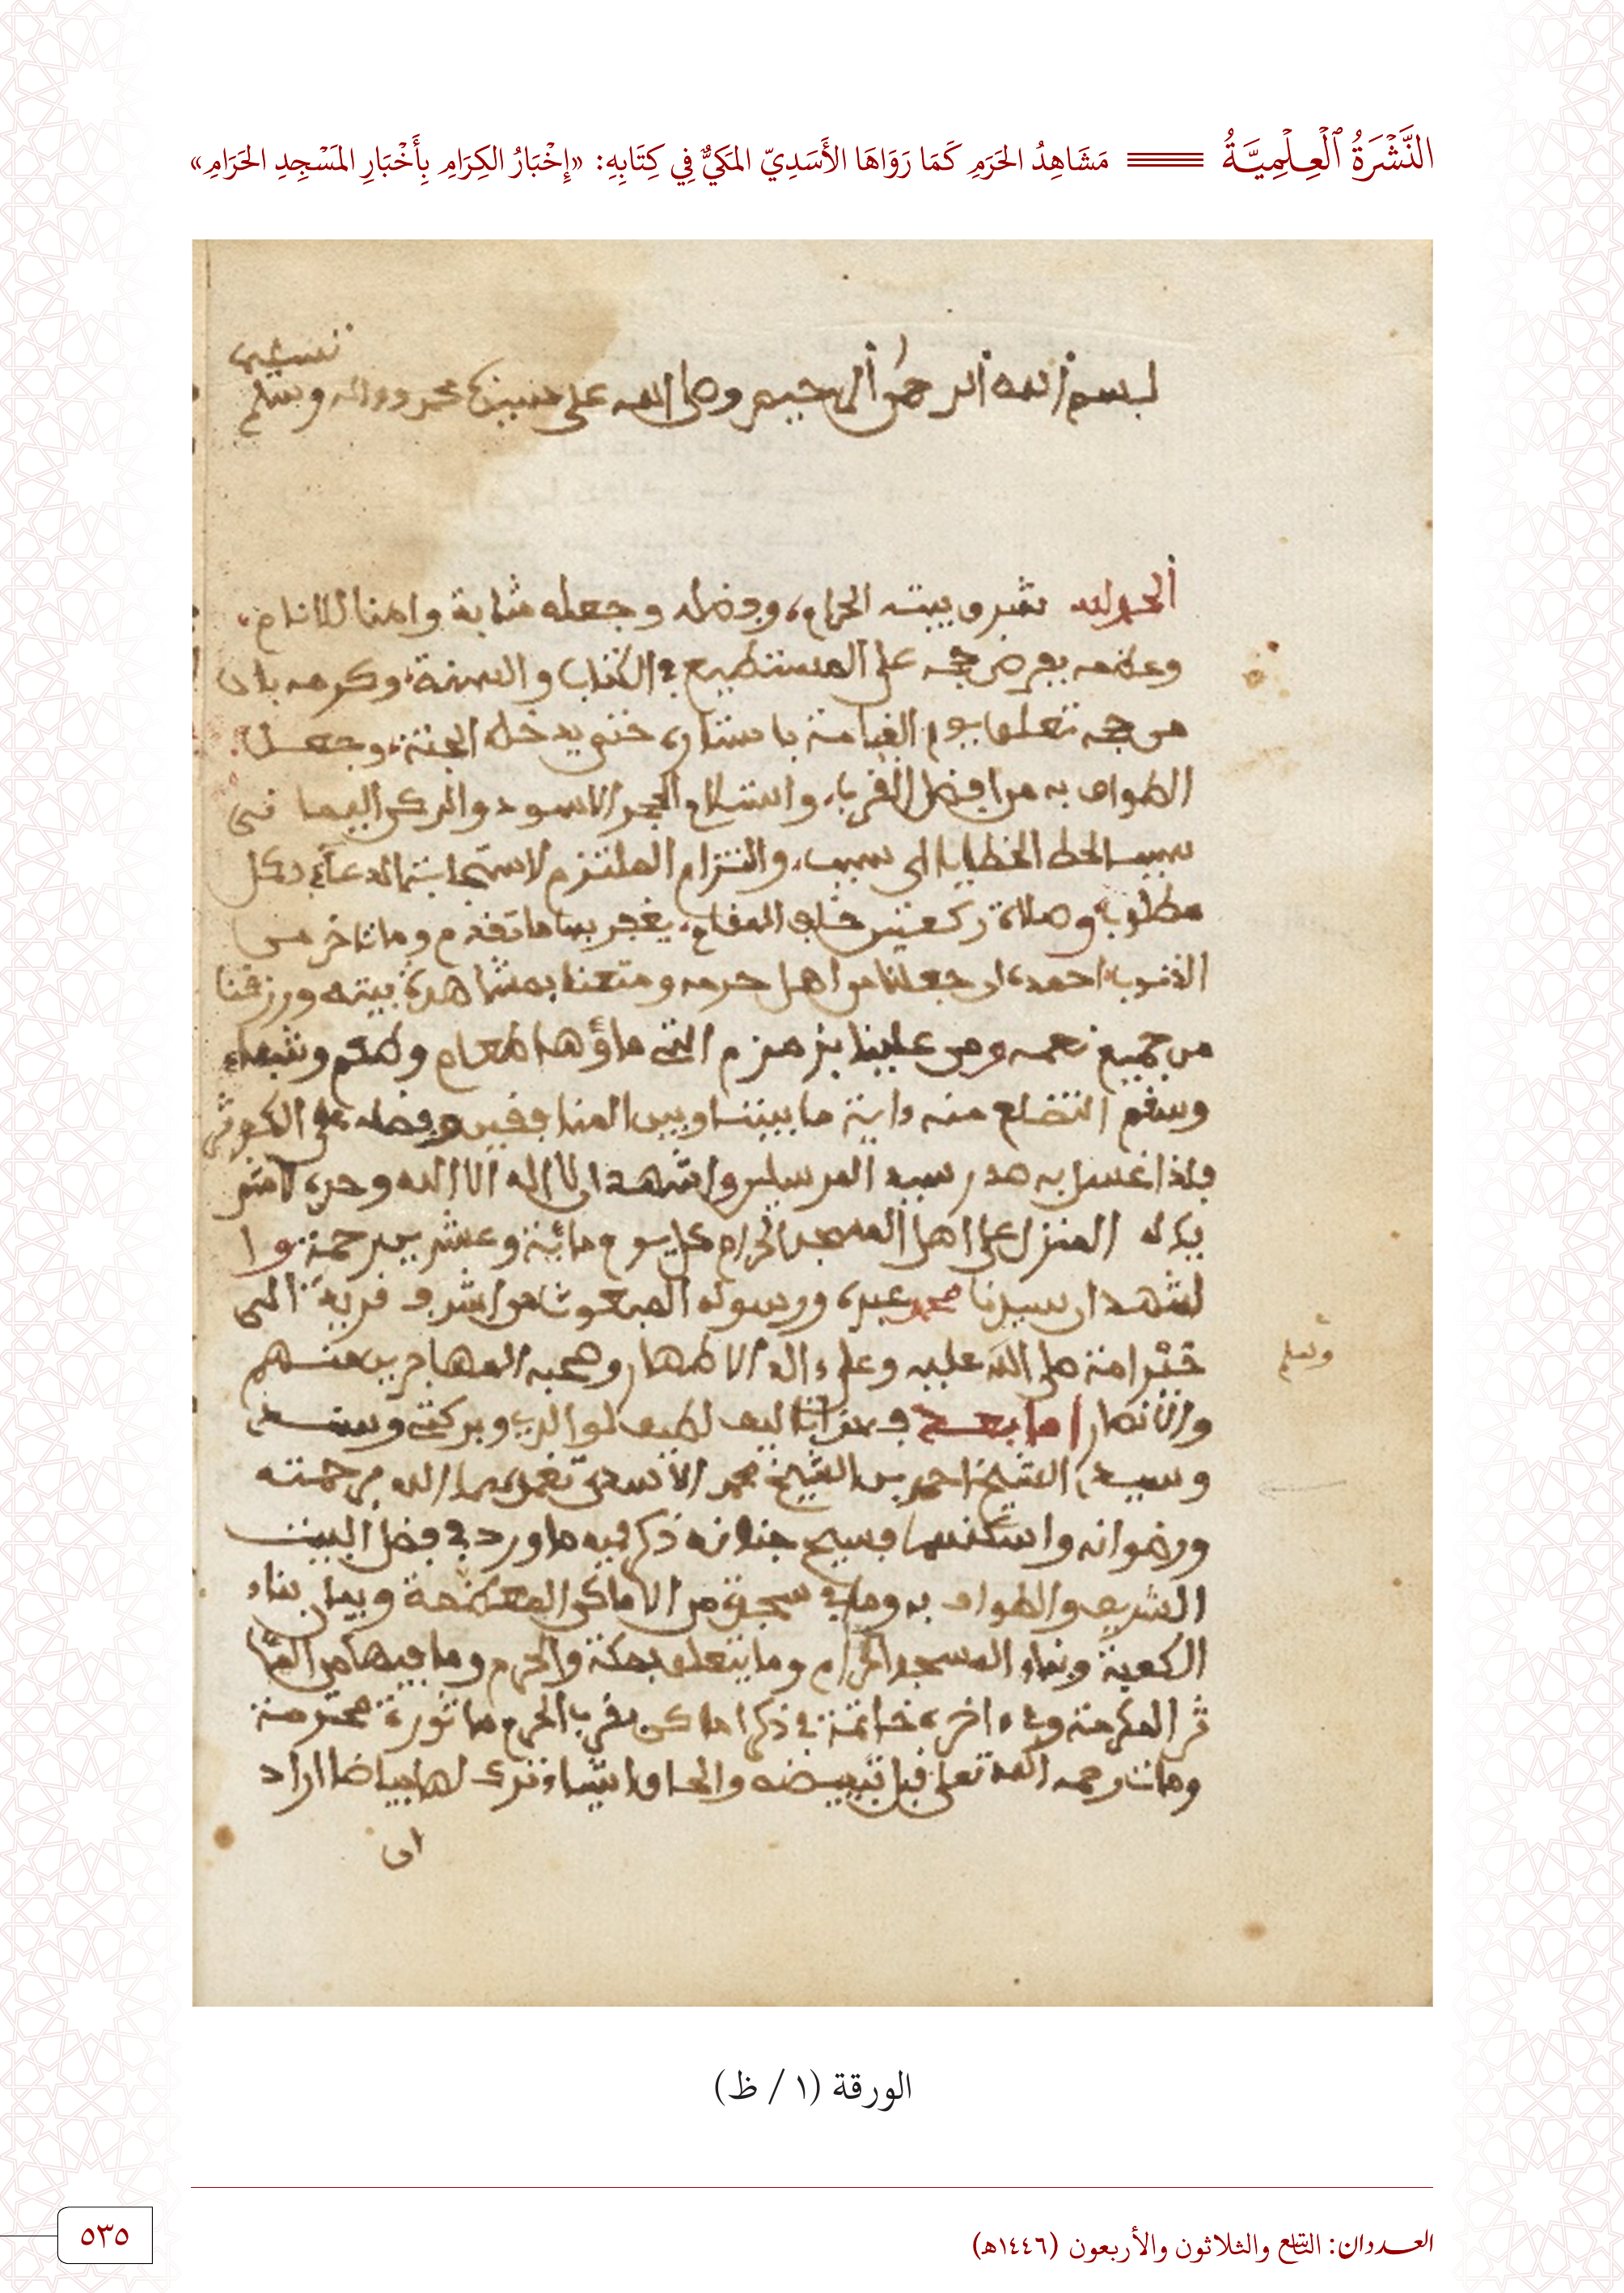 النَّشْرَةُ ٱلْعِلْمِيَّةُ مَشَاهِدُ الحَرَمِ كَمَا رَوَاهَا الأَسَدِيّ المَكِيُّ فِي كِتَابِهِ: «إِخْبَارُ الكِرَامِ بِأَخْبَارِ المَسْجِدِ الحَرَامِ»
بسم الله الرحمن الرحيم وصلى الله على سيدنا محمد وءاله وسلم
الحمد لله شرف بيته الحرام، وفضله وجعله مثابة وامنا للانام،
وعظمه بفرض حجه على المستطيع في الكتاب والسنة، وكرمه بان
من حجه تعلق يوم القيامة باستاره حتى يدخله الجنة، وجعل
الطواف به من افضل القربا، واستلام الحجر الاسود والركن اليما نى
سبب الحط الخطايا اى سبب، والتزام الملتزم لاستجابة الدعاء بكل
مطلوب وصلاة ركعتين خلف المقام، يغفر بها ما تقدم وما تاخر من
الذنوب احمده ان جعلنا من اهل حرمه ومتعنا بمشاهدة بيته ورزقنا
من جميع نعمه ومن علينا بزمزم التى ماؤها طعام وطعم وشفاء
وسقم التضلع منه ءاية ما بيننا وبين المنافقين وفضله على الكوثر
فلذا غسل به صدر سيد المرسلين واشهد ان لا اله الا الله وحده لا شر
يك له المنزل على اهل المسجد الحرام كل يوم مائة وعشرين رحمة وا
شهد ان سيدنا محمد عبده ورسوله المبعوث من اشرف قرية الى
خير امة صلى الله عليه وعلى ءاله الاطهار وصحبه المهاجرين منهم
وسلم
والانصار اما بعد فهذا تاليف لطيف لموالدى وبركتى وسندى
وسيدى الشيخ احمد بن الشيخ محمد الاسدى تغمدهما الله برحمته
ورضوانه واسكنهما فسيح جنانه ذكر فيه ما ورد في فضل البيت
الشريف والطواف به وما في من الاماكن المعظمة وبيان بناء
الكعبة وبناء المسجد الحرام وما يتعلق بمكة والحرم وما فيها من المئا
ثر المكرمة وفى ءاخره خاتمة في ذكر اماكن بقرب الحرم ماثورة محترمة
ومات رحمه الله تعلى قبل تبييضه والحاق اشياء ترك لها بياضا اراد
ان
الورقة (١ / ظ)
العددان: التاسع والثلاثون والأربعون (١٤٤٦هـ)
٥٣٥